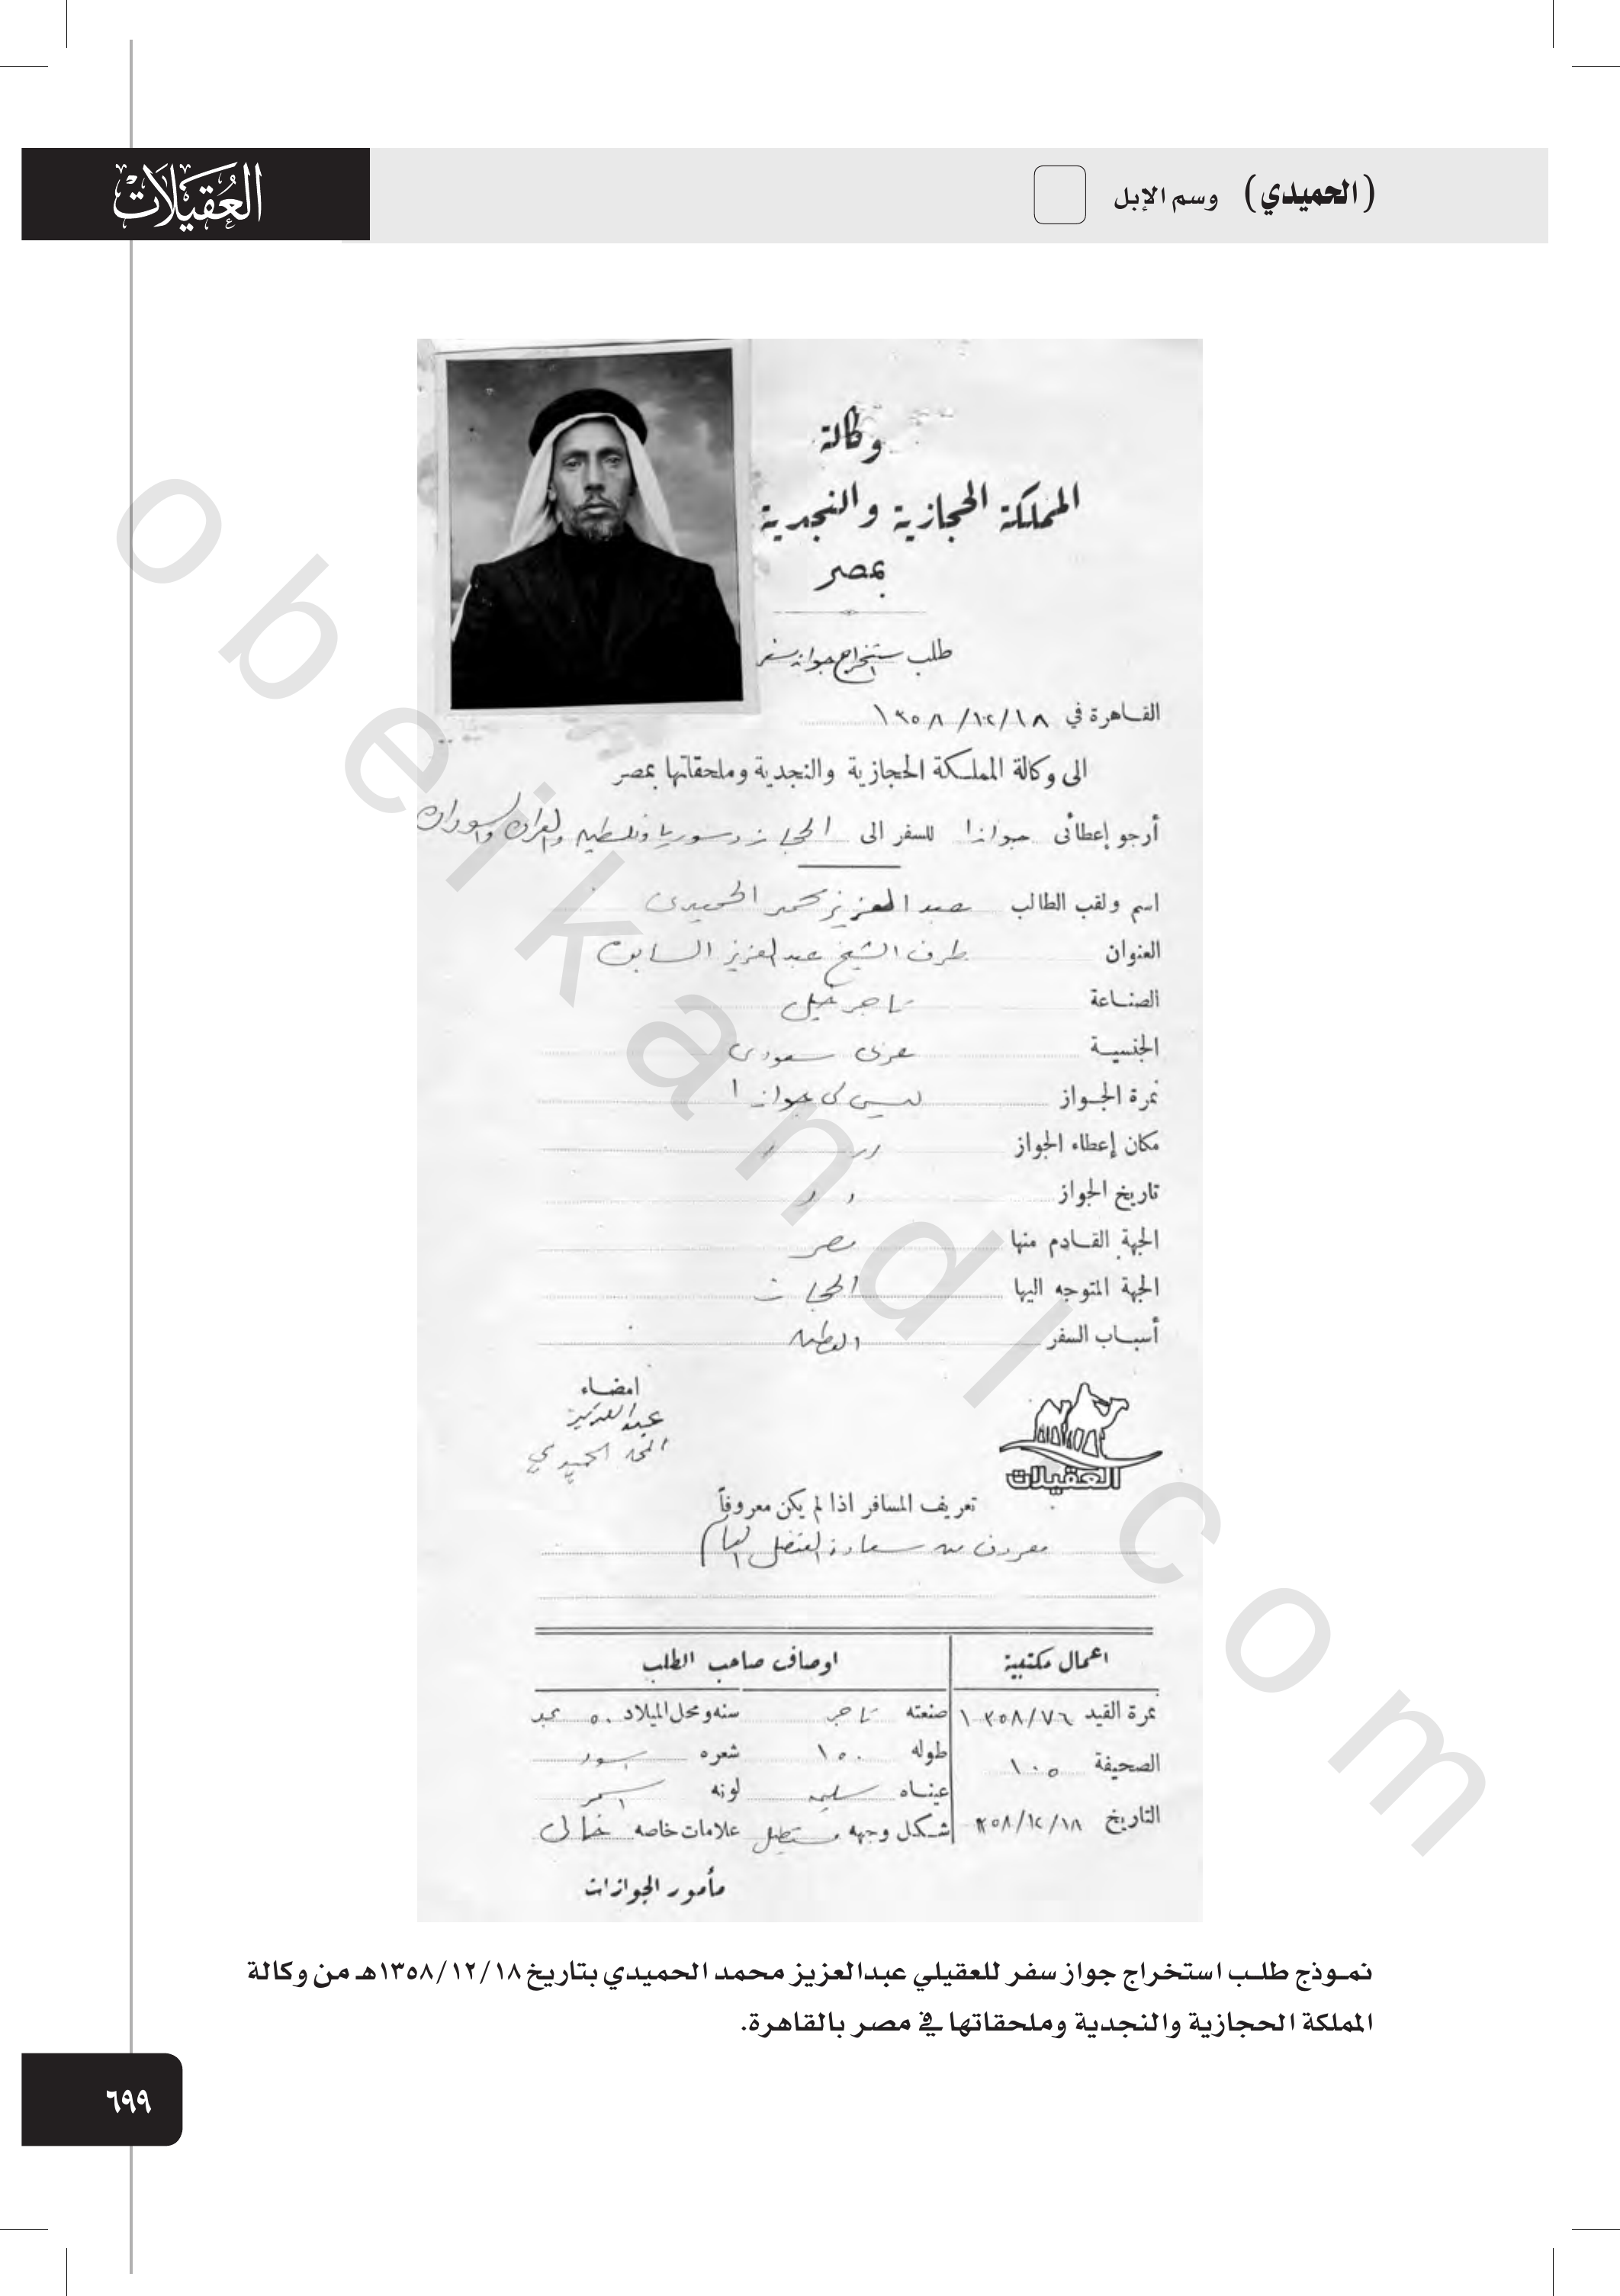 (الحميدي) وسم الإبل
العُقَيلَات
وكالة
المملكة الحجازية والنجدية
بمصر
طلب استخراج جواز سفر
القاهرة في ١٣٥٨/١٢/١٨
الى وكالة المملكة الحجازية والنجدية وملحقاتها بمصر
أرجو إعطائى جوازا للسفر الى الحجاز وسوريا وفلسطين والعراق والسودان
اسم ولقب الطالب عبد العزيز محمد الحميدى
العنوان طرف الشيخ عبد العزيز السابق
الصناعة تاجر خيل
الجنسية عربى سعودى
نمرة الجواز ليس لى جوازا
مكان إعطاء الجواز " "
تاريخ الجواز " "
الجهة القادم منها مصر
الجهة المتوجه اليها الحجاز
أسباب السفر الوطن
امضاء
عبدالعزيز
المحمد الحميدي
العقيلات
تعريف المسافر اذا لم يكن معروفاً
معروف من سعادة القنصل العام
اعمال مكتبية
اوصاف صاحب الطلب
نمرة القيد ١٣٥٨/٧٦
صنعته تاجر
سنه ومحل الميلاد ٥٠ نجد
الصحيفة ١٠٥
طوله ١٥٠
شعره اسود
عيناه سليمه
لونه اسمر
التاريخ ٣٥٨/١٢/١٨
شكل وجهه مستطيل
علامات خاصه خالى
مأمور الجوازات
نموذج طلب استخراج جواز سفر للعقيلي عبدالعزيز محمد الحميدي بتاريخ ١٣٥٨/١٢/١٨هـ من وكالة
المملكة الحجازية والنجدية وملحقاتها في مصر بالقاهرة.
٦٩٩
obeikandl.com